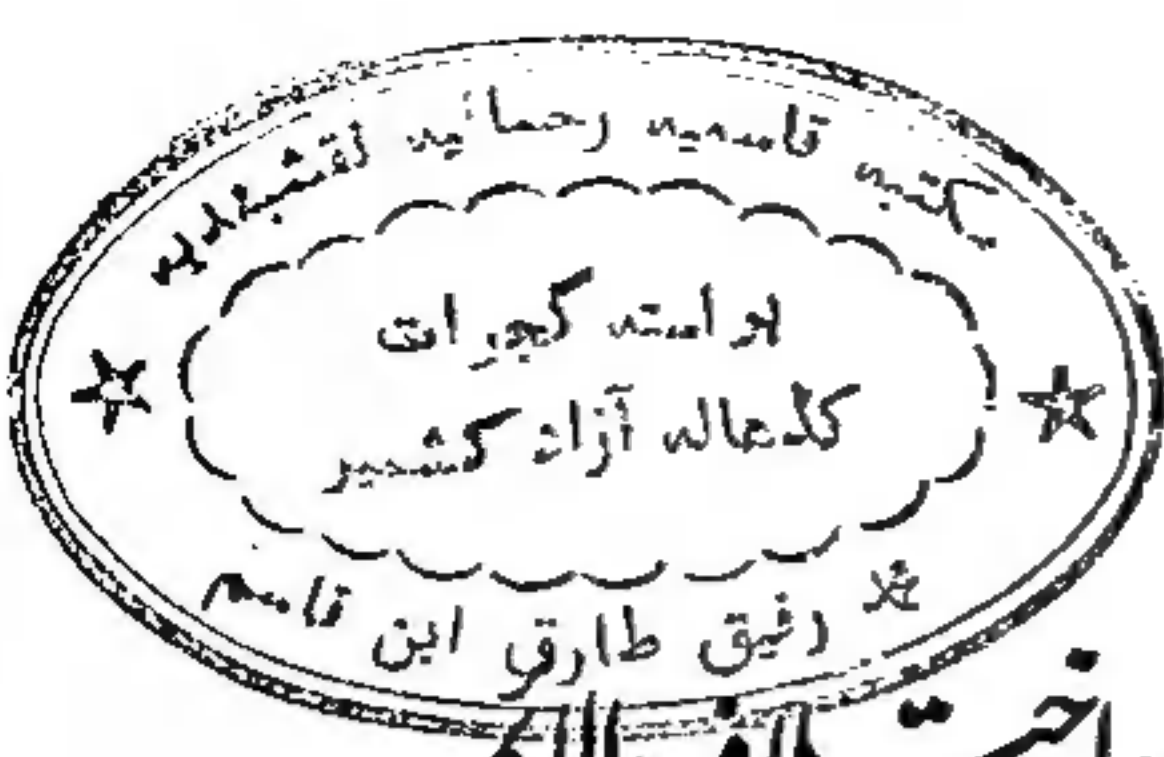 مکتبہ قاسمیہ رحمانیہ نقشبندیہ
براستہ گجرات
آزاد کشمیر
رفیق طارق ابن قاسم